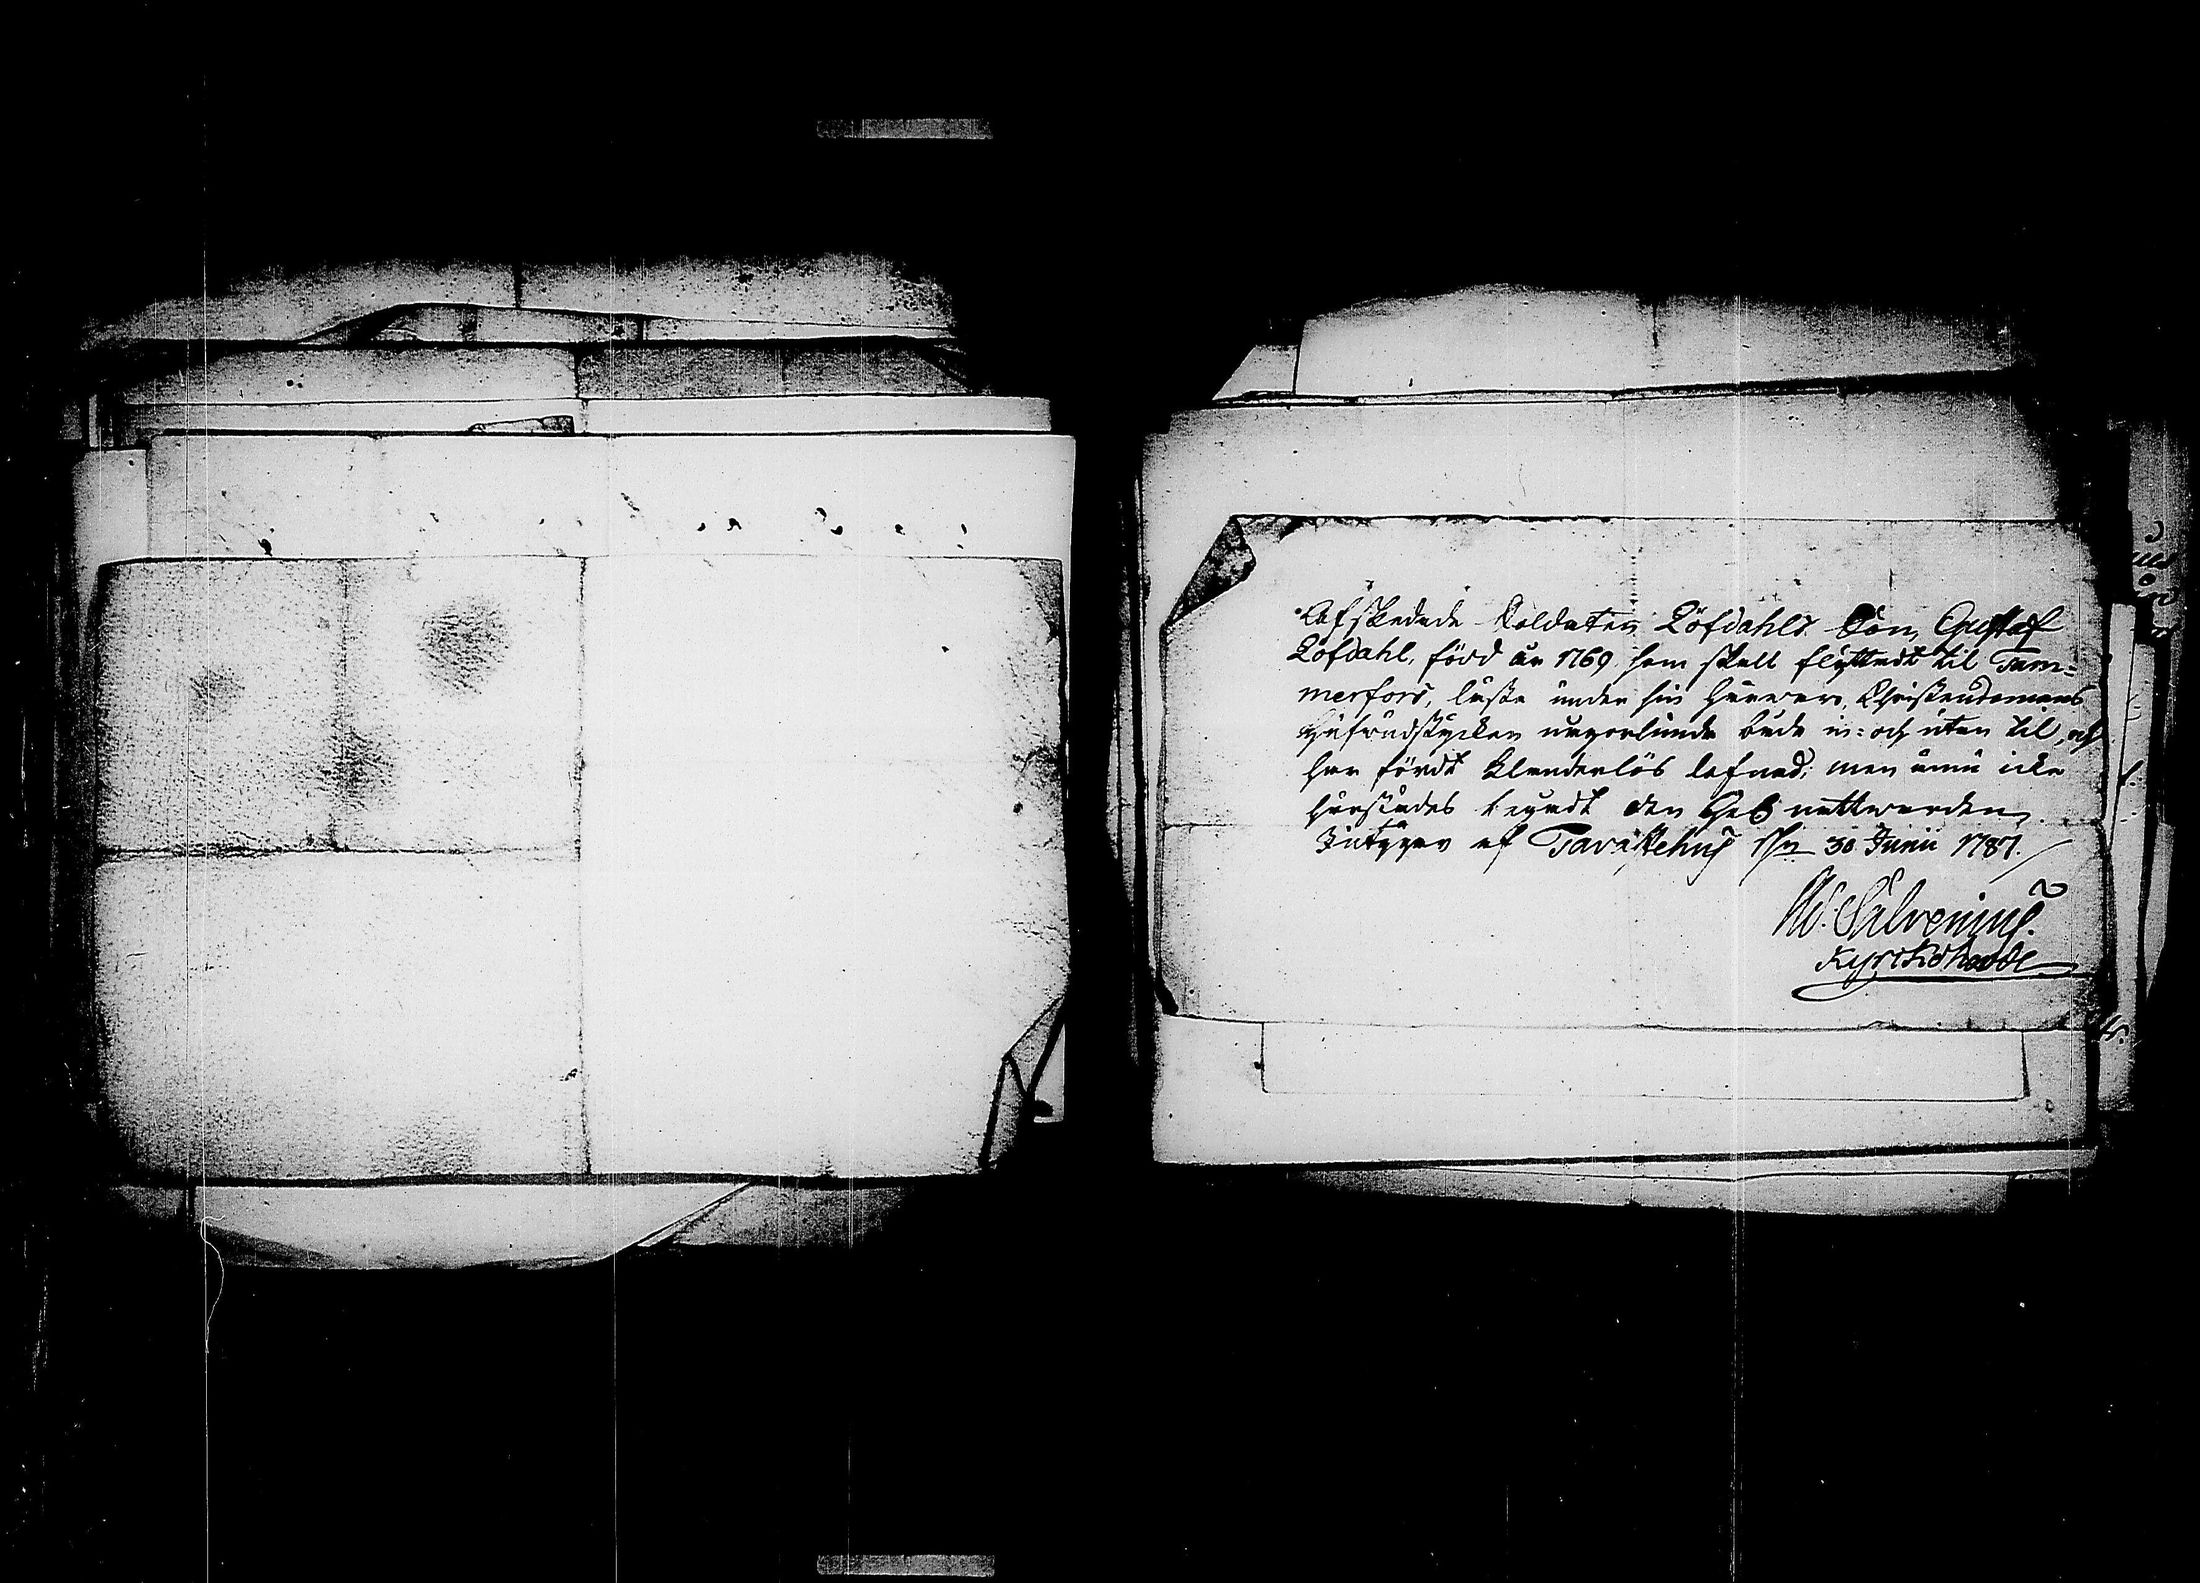 Afskedade Soldaten Löfdahls Son, Gustaf
Löfdahl, född år 1769 som skall flyttadt til Tam-
merfors, läste under sin härvaro, Christendomens
Hufvudstycken någorlunda både in- och utan til, och
har fördt klanderlös lefnad; men ännu icke
härstädes begådt den H nattvarden,
Intygar af Tavastehus d 30 Junii 1787.
Salvenius.
Kyrckoherde